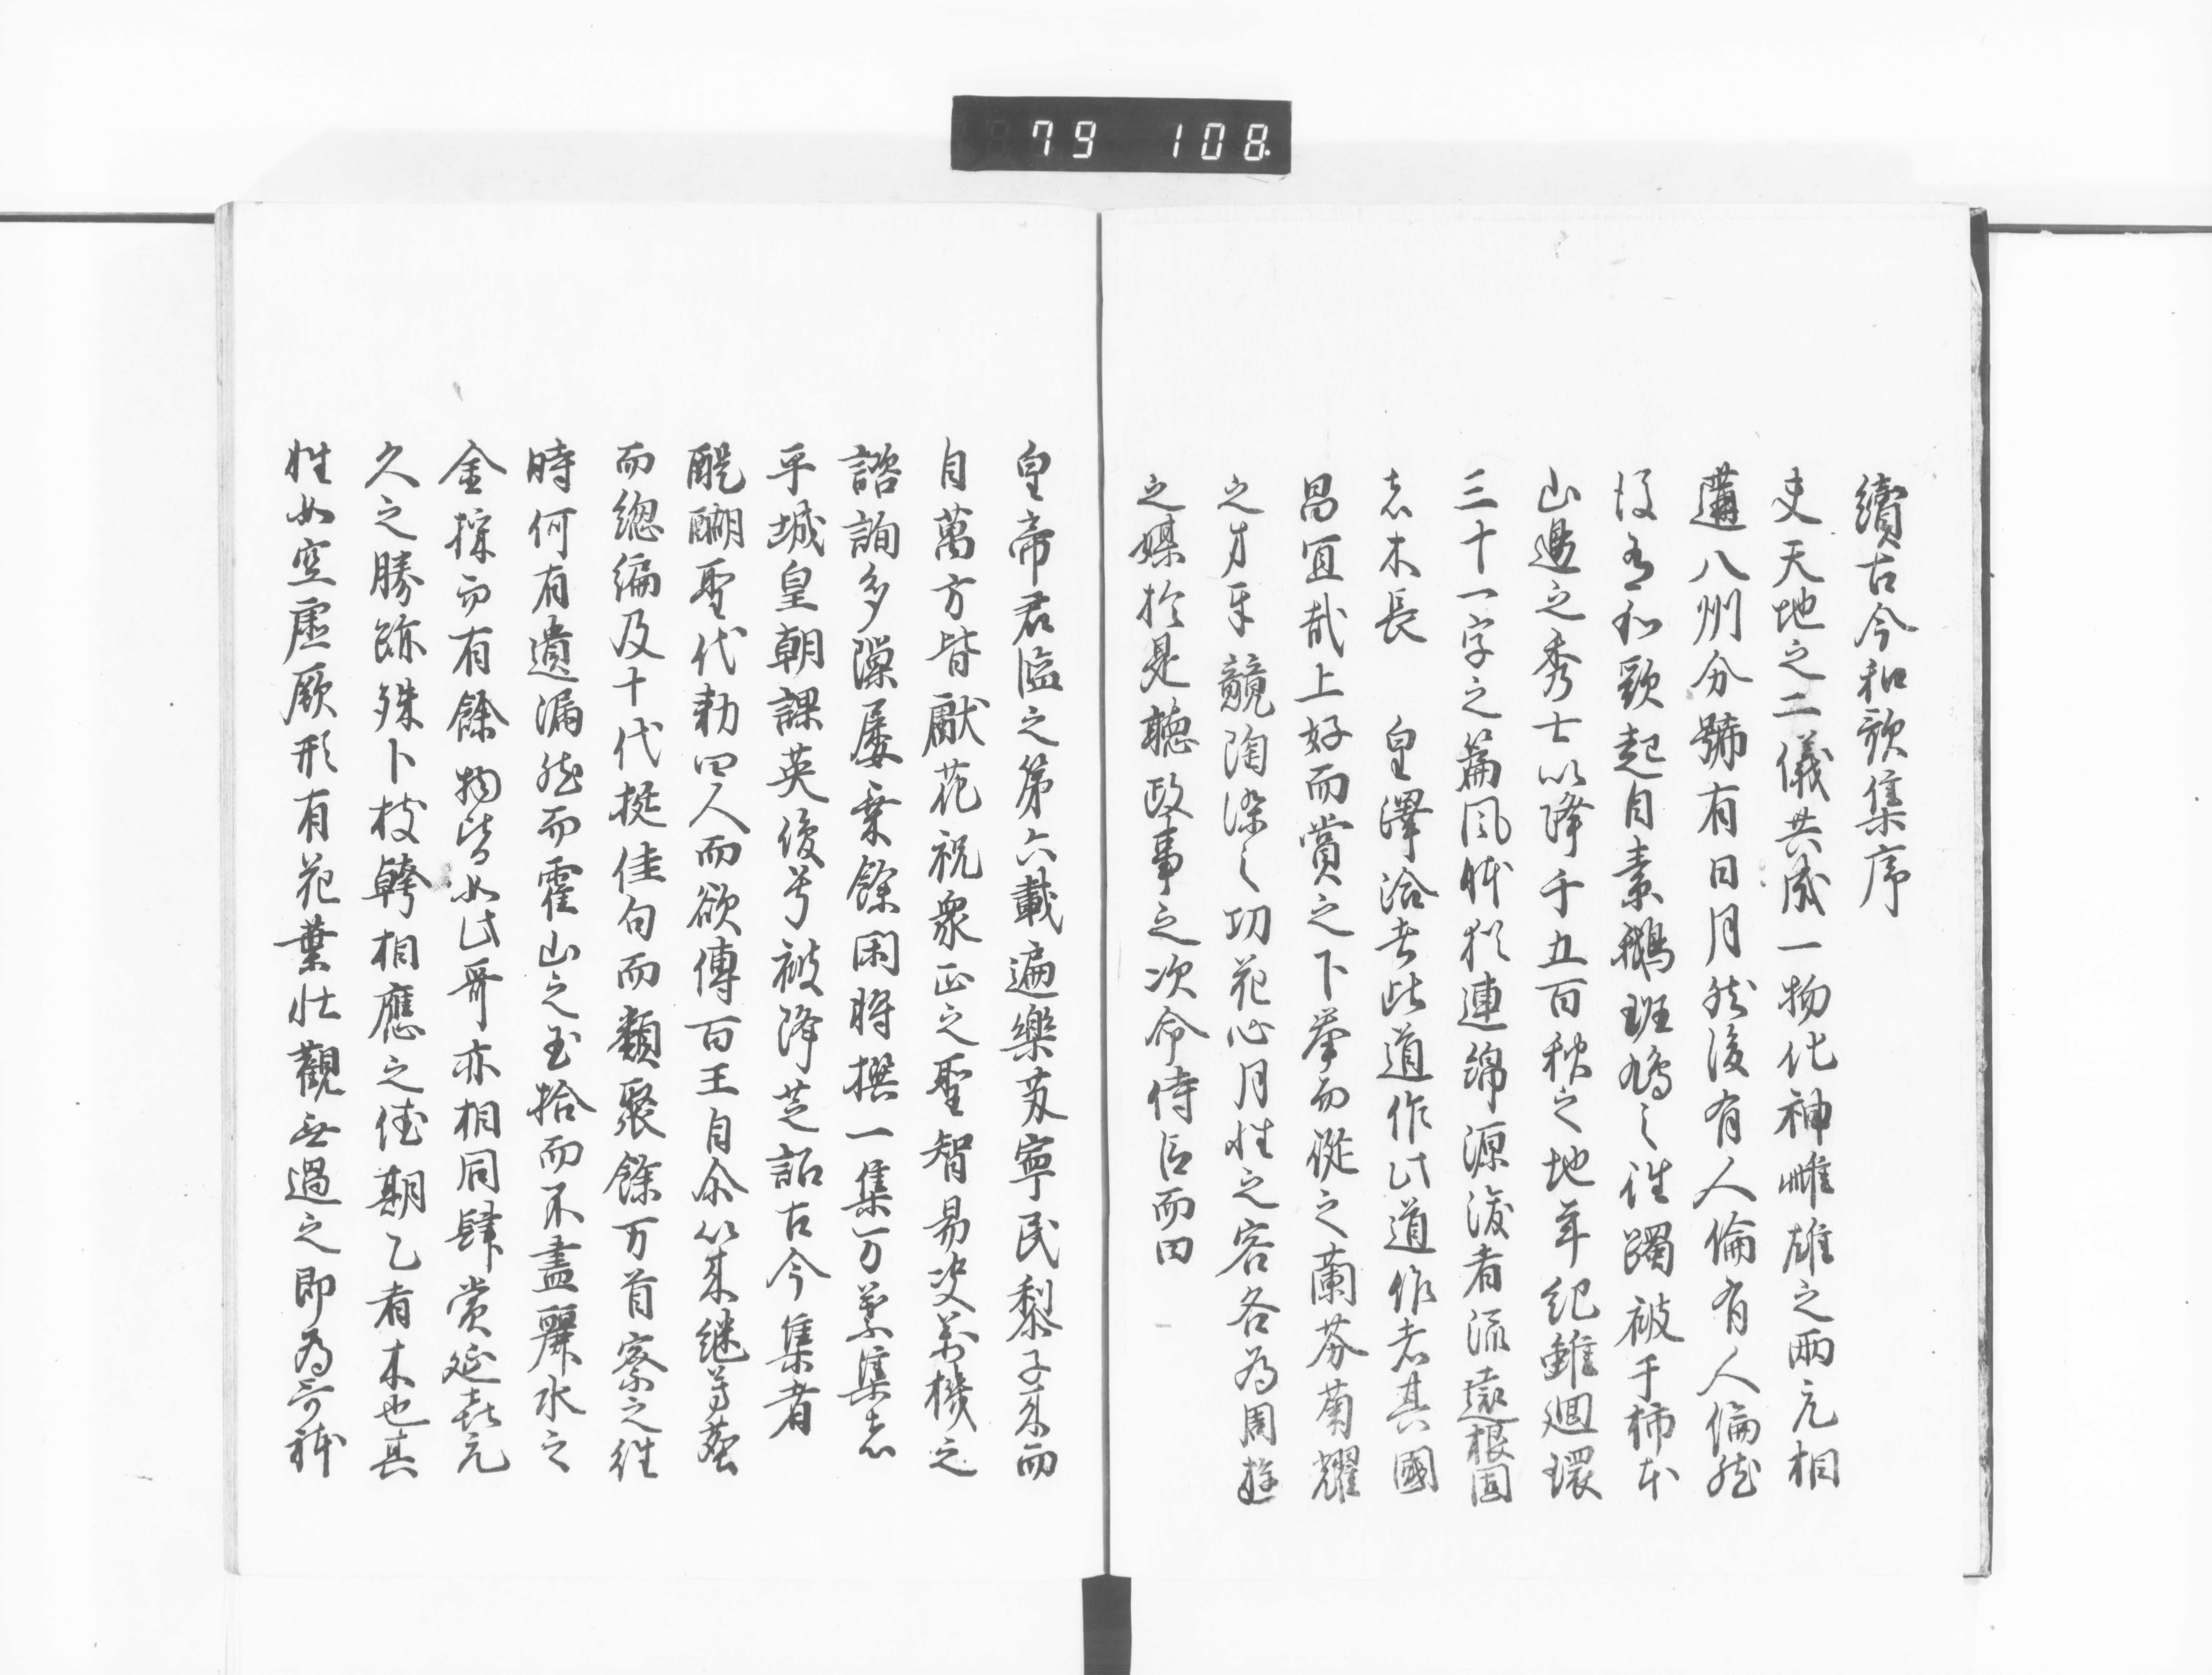 79 108
續古今和歌集序
夫天地之二儀共成一物化神雌雄之兩元相
遘八州分号有日月然後有人倫有人倫然
後有和歌起自素鵝班鳩之往躅被于柿本
山邊之秀士以降千五百秋之地年紀雖廻環
三十一字之篇風躰猶連綿源濬者流遠根固
者木長 皇澤洽者此道作此道作者其國
昌宜哉上好而賞之下挙而従之蘭芬菊耀
之才早競陶染之功花心月性之客各為周遊
之媒於是聴政事之次命侍臣而曰
皇帝君臨之第六載遍樂蘇寧民黎子来而
自萬方皆獻花祝衆正之聖智易決萬機之
諮詢多隙屡乗餘閑將撰一集万葉集者
平城皇朝課英俊兮被降芝詔古今集者
醍醐聖代勅四人而欲傳百王自尒以来継芳塵
而総編及十代挺佳句而類聚餘万首察之往
時何有遺漏然而霍山之玉拾而不盡麗水之
金採而有餘物皆如此哥亦相同肆賞延喜元
久之勝跡殊卜枝幹相應之佳期乙者木也其
性如空虚厥形有花葉壮觀無過之即為哥躰